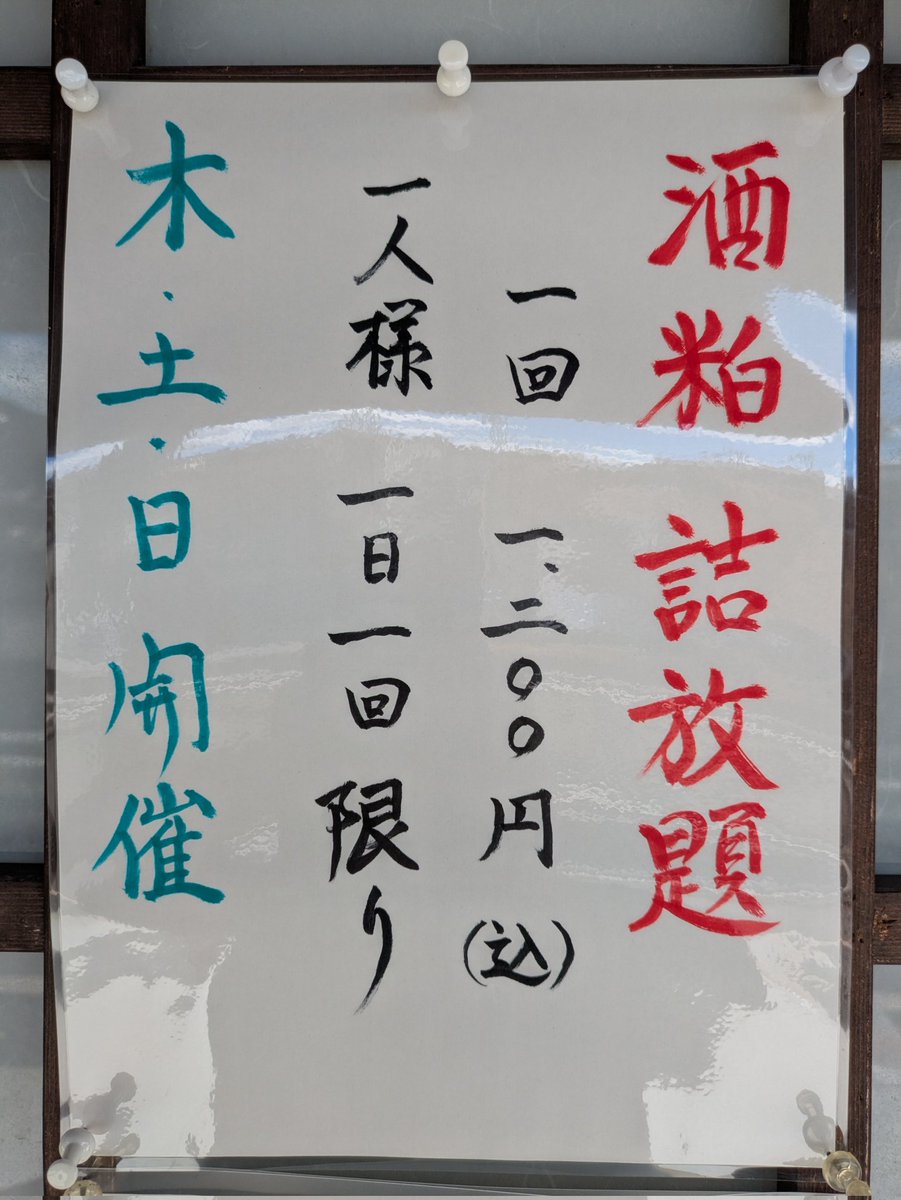 酒粕 詰放題
一回 一、二〇〇円(込)
一人様 一日一回限り
木・土・日 開催